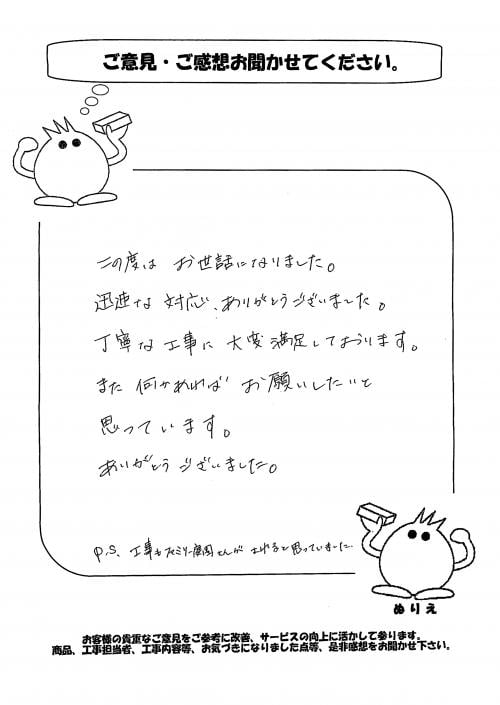 ご意見・ご感想お聞かせてください。
この度は お世話になりました。
迅速な 対応、ありがとうございました。
丁寧な工事に 大変満足しております。
また 何かあれば お願いしたいと
思っています。
ありがとうございました。
P.S、工事も ファミリー庭園さんが されると思っていました
ぬりえ
お客様の貴重なご意見をご参考に改善、サービスの向上に活かして参ります。
商品、工事担当者、工事内容等、お気づきになりました点等、是非感想をお聞かせ下さい。